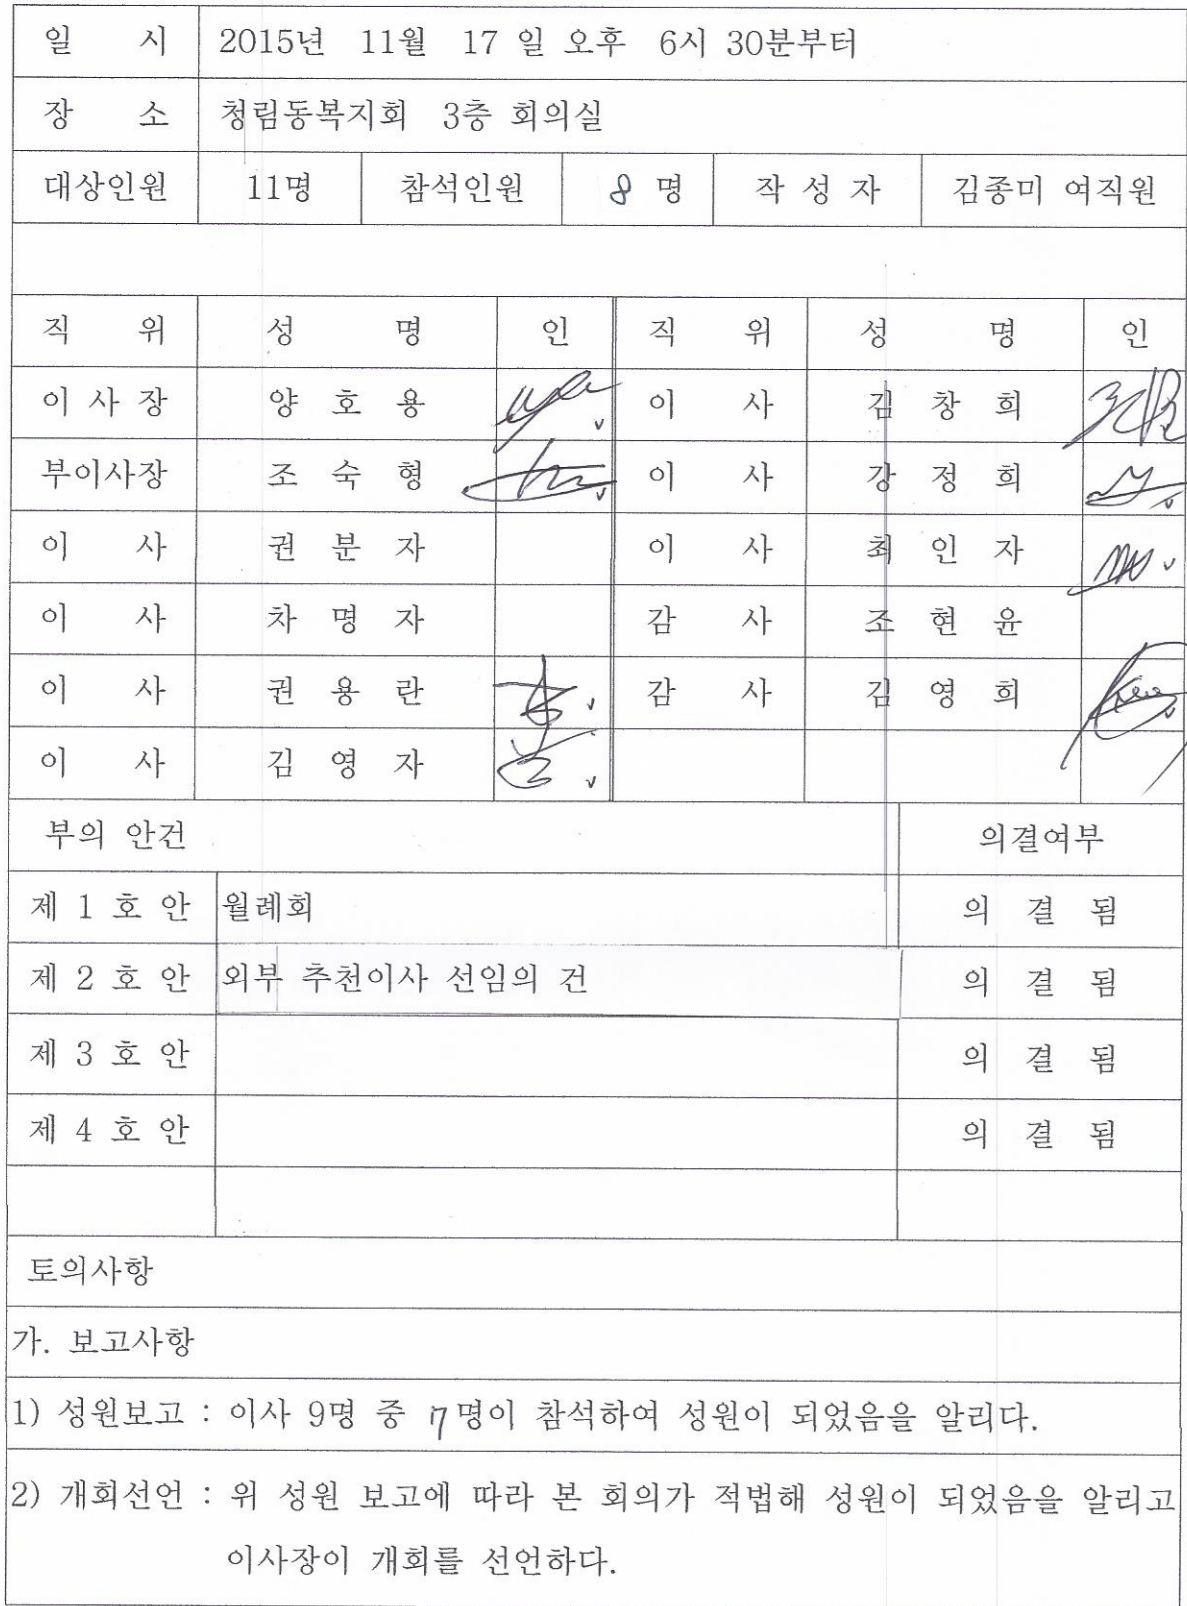 일 시 2015년 11월 17 일 오후 6시 30분부터
장 소 청림동복지회 3층 회의실
대상인원 11명 참석인원 8 명 작 성 자 김종미 여직원
직 위 성 명 인 직 위 성 명 인
이 사 장 양 호 용 이 사 김 창 희
부이사장 조 숙 형 이 사 강 정 희
이 사 권 분 자 이 사 최 인 자
이 사 차 명 자 감 사 조 현 윤
이 사 권 용 란 감 사 김 영 희
이 사 김 영 자
부의 안건 의결여부
제 1 호 안 월례회 의 결 됨
제 2 호 안 외부 추천이사 선임의 건 의 결 됨
제 3 호 안 의 결 됨
제 4 호 안 의 결 됨
토의사항
가. 보고사항
1) 성원보고 : 이사 9명 중 7명이 참석하여 성원이 되었음을 알리다.
2) 개회선언 : 위 성원 보고에 따라 본 회의가 적법해 성원이 되었음을 알리고
이사장이 개회를 선언하다.